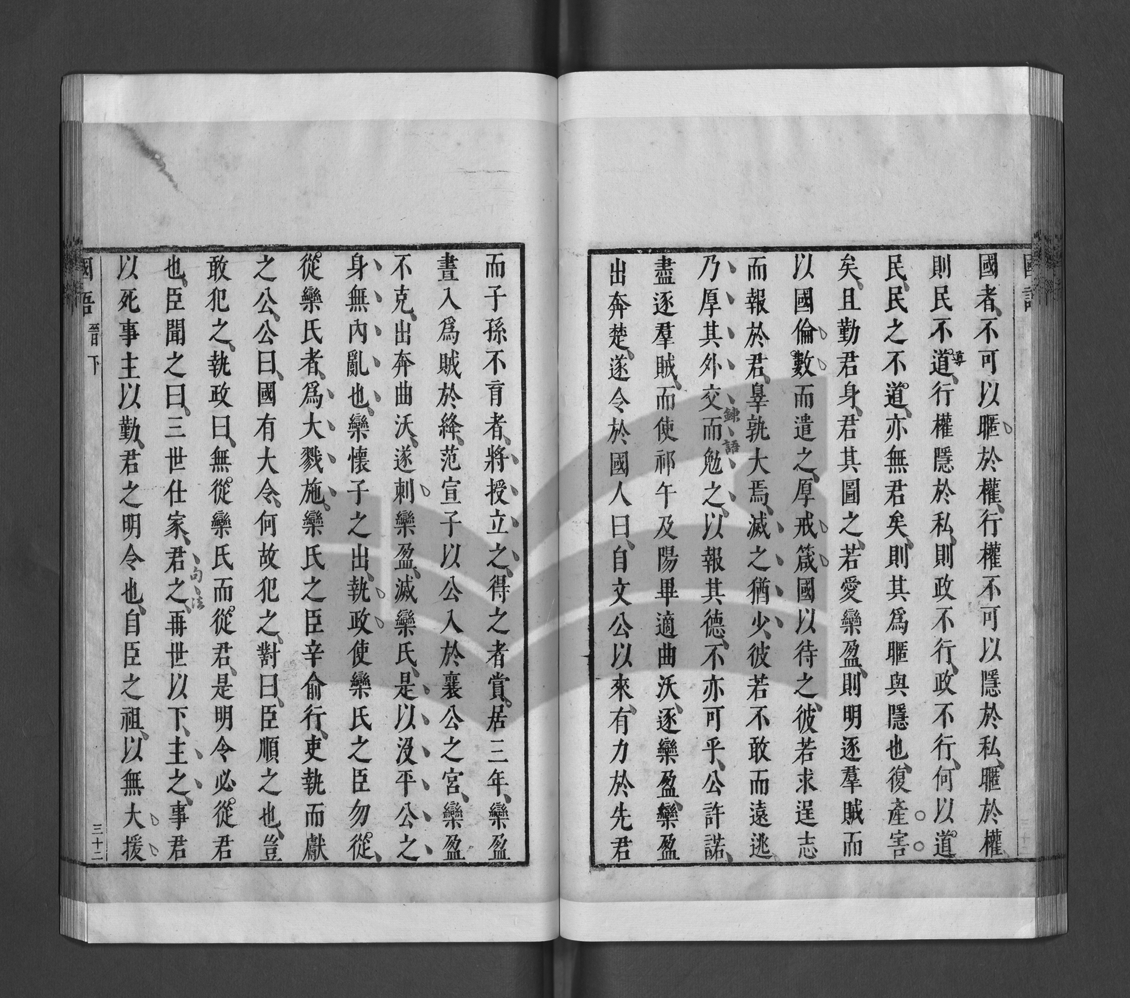 國語
國者不可以暱於權行權不可以隱於私暱於權
則民不道行權隱於私則政不行政不行何以道
導
民民之不道亦無君矣則其爲暱與隱也復產害
矣且勤君身君其圖之若愛欒盈則明逐羣賊而
以國倫數而遣之厚戒箴國以待之彼若求逞志
而報於君辠孰大焉滅之猶少彼若不敢而遠逃
乃厚其外交而勉之以報其德不亦可乎公許諾
鍊語
盡逐羣賊而使祁午及陽畢適曲沃逐欒盈欒盈
出奔楚遂令於國人曰自文公以來有力於先君
而子孫不育者將授立之得之者賞居三年欒盈
晝入爲賊於絳范宣子以公入於襄公之宮欒盈
不克出奔曲沃遂刺欒盈滅欒氏是以沒平公之
身無內亂也欒懷子之出執政使欒氏之臣勿從
從欒氏者爲大戮施欒氏之臣辛俞行吏執而獻
之公公曰國有大令何故犯之對曰臣順之也豈
敢犯之執政曰無從欒氏而從君是明令必從君
句法
也臣聞之曰三世仕家君之再世以下主之事君
以死事主以勤君之明令也自臣之祖以無大援
國語 晉下 三十二